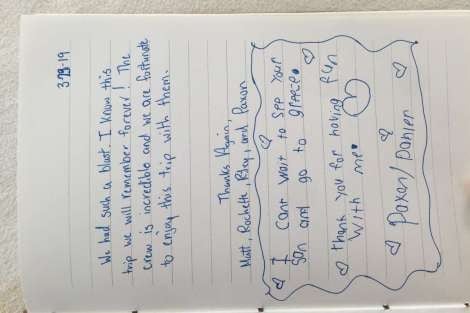 We had such a blast. I know this
trip we will remember forever! The
crew is incredible and we are fortunate
to enjoy this trip with them.
Thanks Again,
Matt, Rochelle, and Paxon
I cant wait to see your
son and go to greece.
thank you for having fun
with me.
Paxon/